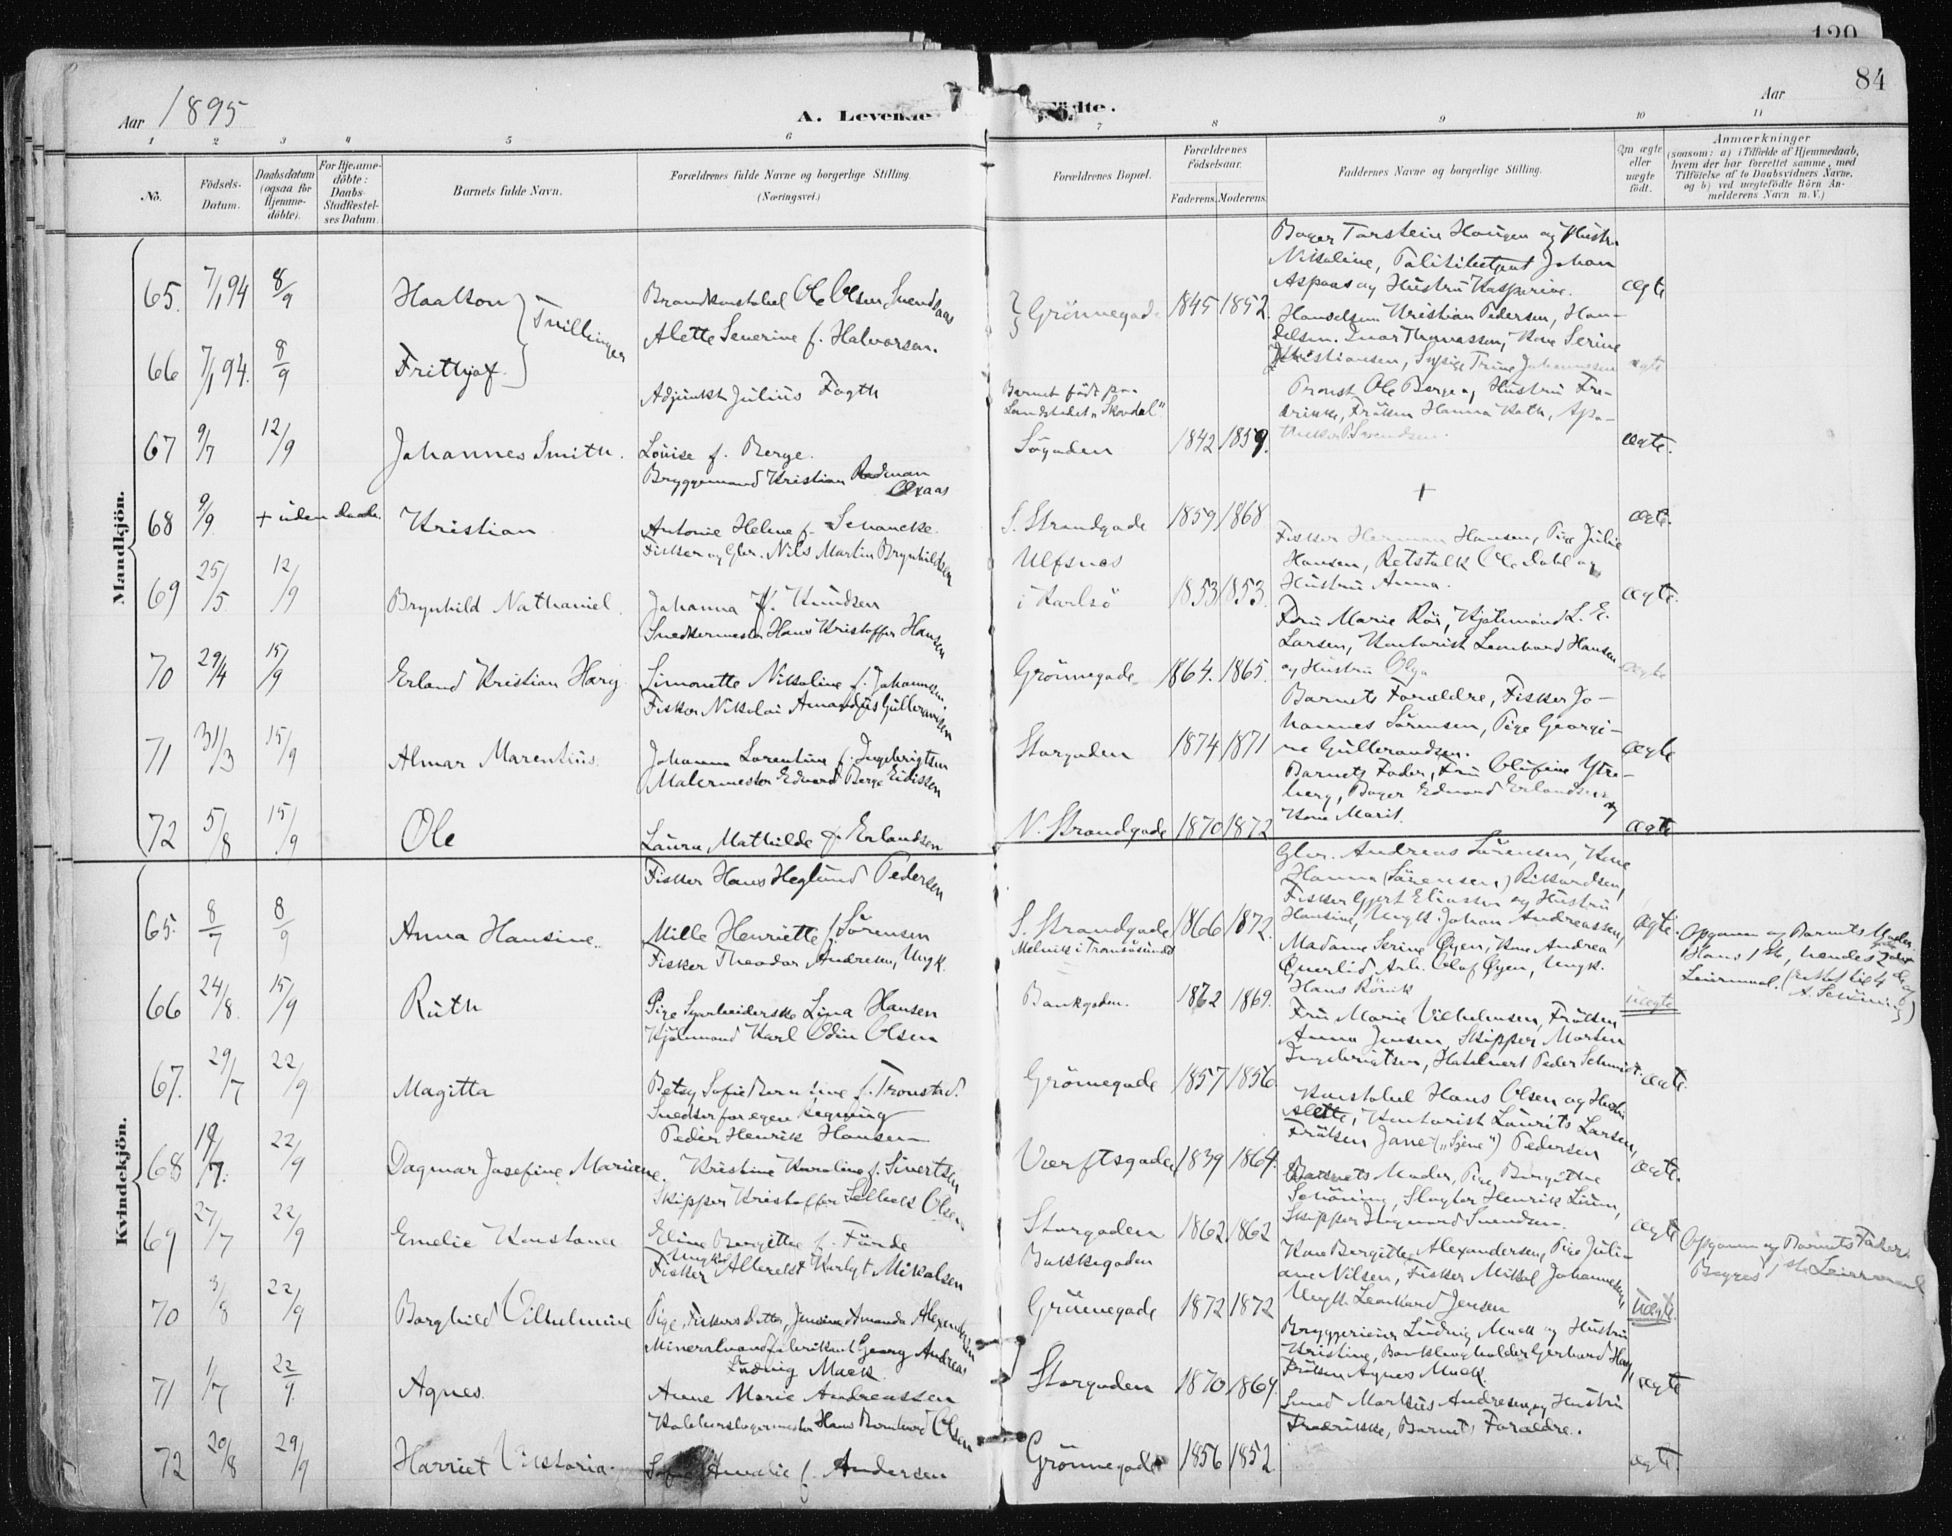 120
84
Aar 1895
A. Levende
Födte.
Aar
1 2 3 4 5 6 7 8 9 10 11
No.
Födsels-Datum.
Daabsdatum (ogsaa for Hjemme-döbte).
For Hjemme-döbte: Daabs-Stadfæstel-ses Datum.
Barnets fulde Navn.
Forældrenes fulde Navne og borgerlige Stilling. (Næringsvei.)
Forældrenes Bopæl.
Forældrenes Födselsaar.
Faderens. Moderens.
Faddernes Navne og borgerlige Stilling.
Om ægte eller uægte födt.
Anmærkninger
(saasom: a) i Tilfælde af Hjemmedaab,
hvem der har forrettet samme, med
Tilföielse af to Daabsvidners Navne,
og b) ved uægtefödte Börn An-
melderens Navn m. V.)
Mandkjön.
65. 7/1 94 8/9 Haakon } Tvillinger
Brandkonstabel Ole Olsen Svendsaas
Alette Severine f. Halvorsen.
Grönnegade 1845 1852.
Bager Tarstein Haugen og Hustru
Nikoline, Politibetjent Johan
Aspaas og Hustru Kasperine.
ægte
66 7/1 94. 8/9 Frithjof.
Handelsm Kristian Pedersen, Han-
delsm. Ivar Thomassen, Kone Serine
Kristiansen, Trine Johannesen
ægte
67 9/7 12/9 Johannes Smith.
Adjunkt Julius Fagth
Louise f. Berge.
Barnet födt paa
Landstedet "Skovdal"
Sögaden 1842 1859.
Provst Ole Berge og Hustru Fre-
drikke, Fröken Hanna Koth, Apo-
theker Svendsen.
ægte.
68 9/9. + uden Daab. Kristian
Bryggemand Kristian Rodman
Oxaas
Antonie Helene f. Schancke.
S. Strandgade 1859 1868
+
ægte.
69 25/5. 12/9 Brynhild Nathaniel.
Fisker og Gbr. Nils Martin Brynhildsen
Johanna f. Knudsen
Ulfsnes
i Karlsö 1853 1853.
Fisker Herman Hansen, Pige Julie
Hansen, Retstolk Ole Dahl og
Hustru Anna.
ægte.
70 29/4 15/9 Erland Kristian Harg
Snedkermester Hans Kristoffer Hansen
Simonette Nikoline f. Johannesen.
Grönnegade 1864. 1865.
Fru Marie Röi, Kjöbmand L. E.
Larsen, Kontorist Leonhard Hansen
og Hustru Olga
ægte
71 31/3 15/9 Almar Marentius.
Fisker Nikolai Amandus Gulleransen
Johanna Lorentine f. Ingebrigtsen
Storgaden 1874 1871
Barnets Forældre, Fisker Jo-
hannes Sörensen, Pige Georgi-
ne Gulleransen.
ægte
72 5/8 15/9 Ole
Malermester Edvard Berge Eidissen
Laura Mathilde f. Erlandsen
N. Strandgade 1870 1872
Barnets Fader, Fru Olufine Ytre-
berg, Bager Edvard Erlandsen og
Kone Marit.
ægte
Kvindekjön.
65. 8/7 8/9 Anna Hansine.
Fisker Hans Heglund Pedersen
Mille Henriette f. Sörensen
S. Strandgade 1866 1872.
Gbr. Andreas Sörensen, Kone
Hanna (Sörensen) Rikardsen,
Fisker Gjert Eliassen og Hustru
Hansine, Ungk. Johan Andreassen,
ægte.
66 24/8. 15/9 Ruth
Fisker Theodor Andresen, Ungk.
Pige Syarbeiderske Lina Hansen
Melvik i Tromsösundet
Bankgaden. 1862 1869.
Madame Serine Öyen, Kone Andrea
Qverlid, Arb. Olaf Öyen, Ungk.
Hans Rönik
uægte
Opgaven og Barnets Moder.
Hans 1ste, hendes 2det
Leiermaal.
67. 29/7 22/9 Magitta
Kjöbmand Karl Odin Olsen
Betzy Sofie Berntine f. Tronstad.
Grönnegade 1857 1856
Fru Marie Vilhelmsen, Fröken
Anna Jensen, Skipper Morten
Ingebrigtsen, Peder Schmidt.
ægte.
68 19/7. 22/9 Dagmar Josefine Mariane.
Snedker for egen Regning
Peder Henrik Hansen
Kristine Karoline f. Sivertsen
Værftsgaden 1839 1864.
Konstabel Hans Olsen og Hustru
Alette, Kontorist Laurits Larsen,
Fröken Jane ("Sjene") Pedersen
ægte.
69 27/7 22/9 Emelie Konstance
Skipper Kristoffer Selbæk Olsen
Eline Bergitte f. Funde
Storgaden 1862 1862
Barnets Moder, Pige Bergitte
Schöning, Slagter Henrik Lium,
Skipper Hagward Svendsen.
ægte
70 3/8 22/9 Borghild Vilhelmine
Ungkar
Fisker Albrekt Kurlyt Mikalsen
Pige, Fiskers Datter, Jensine Amanda Alexandersen
Bakkegaden
Grönnegade 1872 1872
Kone Bergitte Alexandersen, Pige Juli-
ane Nilsen, Fisker Mikal Johannesen
Ungk. Leonhard Jensen
uægte.
Opgaven og Barnets Fader.
Begges 1ste Leiermaal
71 1/7 22/9 Agnes.
Mineralvandfabrikant Georg Andreas
Ludvig Mack.
Anne Marie Andreassen
Storgaden 1870 1869.
Bryggerieier Ludvig Mack og Hustru
Kristine, Bankbogholder Gerhard Hay,
Fröken Agnes Mack.
ægte
72 20/8 29/9 Harriet Viktoria
Hans Bernhard Olsen
Sofie Amalie f. Andersen
Grönnegade 1856 1852.
Smed Markus Andresen og Hustru
Fredrikke, Barnets Forældre.
ægte.